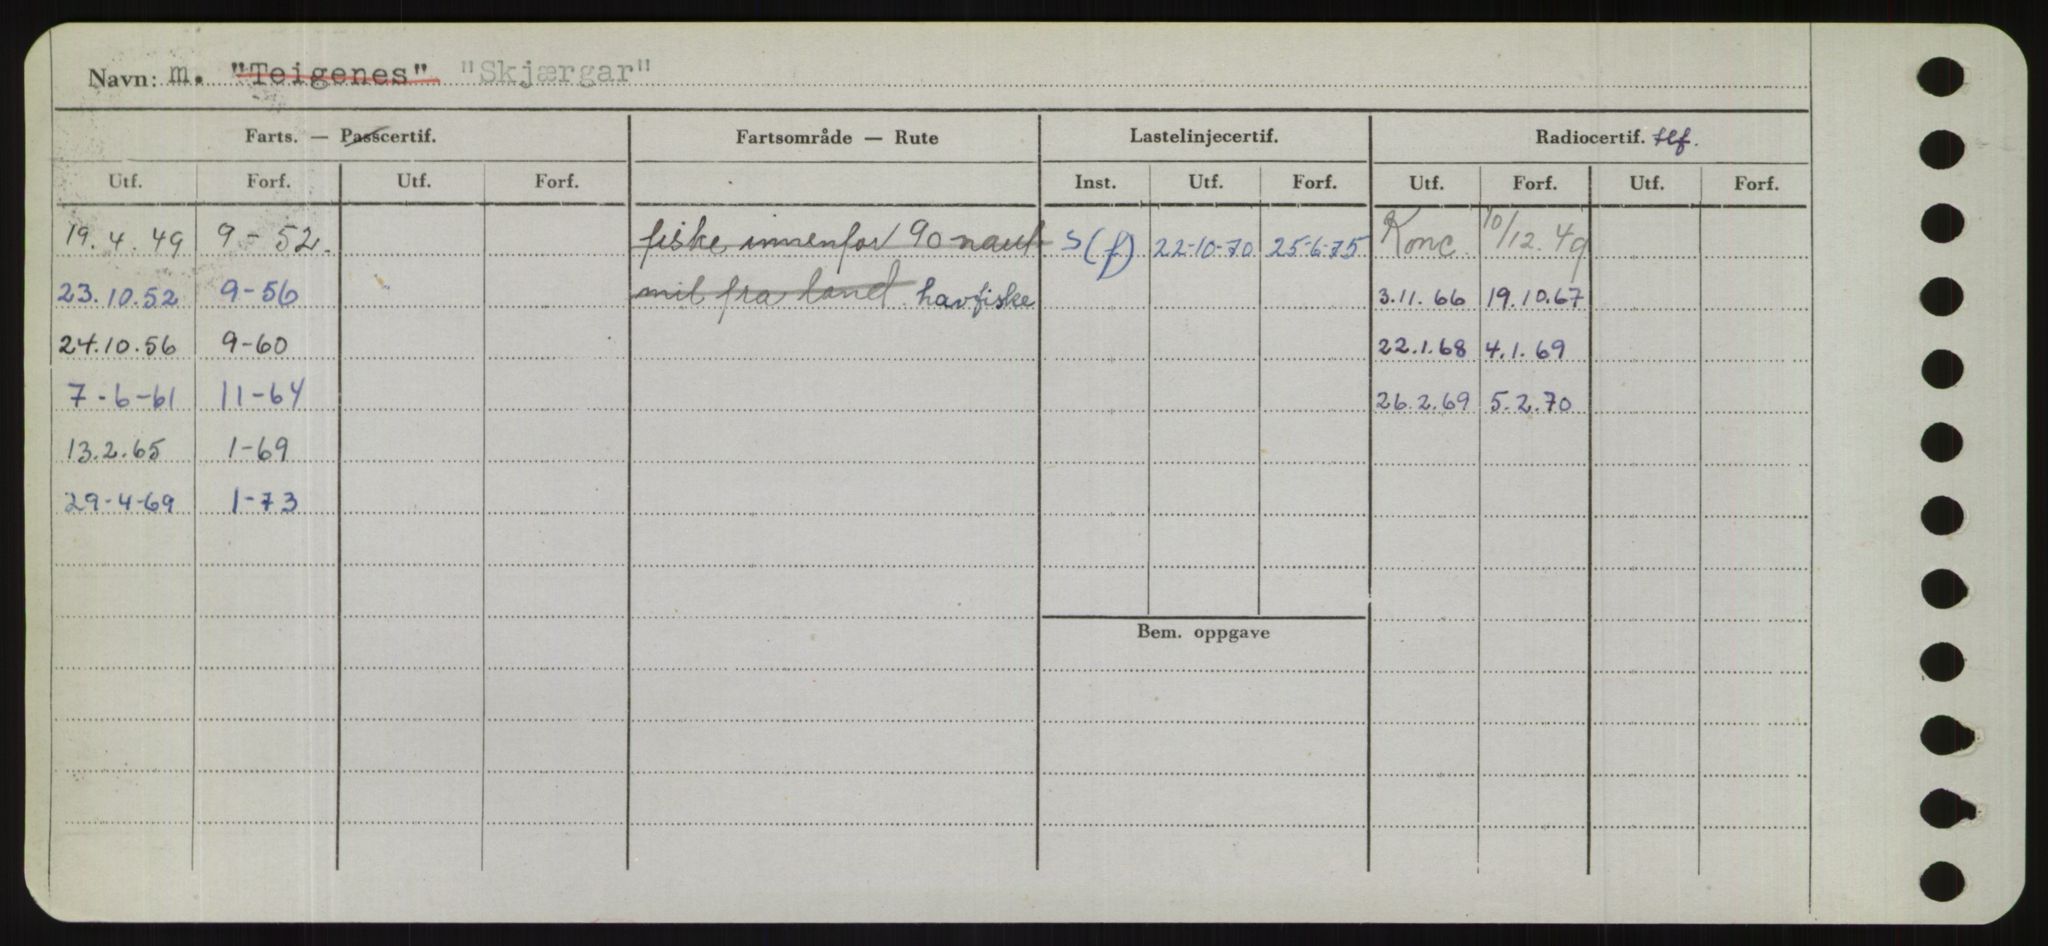 Navn: m. "Teigenes" "Skjærgar"
Farts. — Passcertif. Fartsområde — Rute Lastelinjecertif. Radiocertif. tlf.
Utf. Forf. Utf. Forf. Inst. Utf. Forf. Utf. Forf. Utf. Forf.
19.4.49 9-52. fiske innenfor 90 naut S(f) 22-10-70 25-6-75 Konc. 10/12.49
23.10.52 9-56 mil fra land. havfiske 3.11.66 19.10.67
24.10.56 9-60 22.1.68 4.1.69
7-6-61 11-64 26.2.69 5.2.70
13.2.65 1-69
29-4-69 1-73
Bem. oppgave